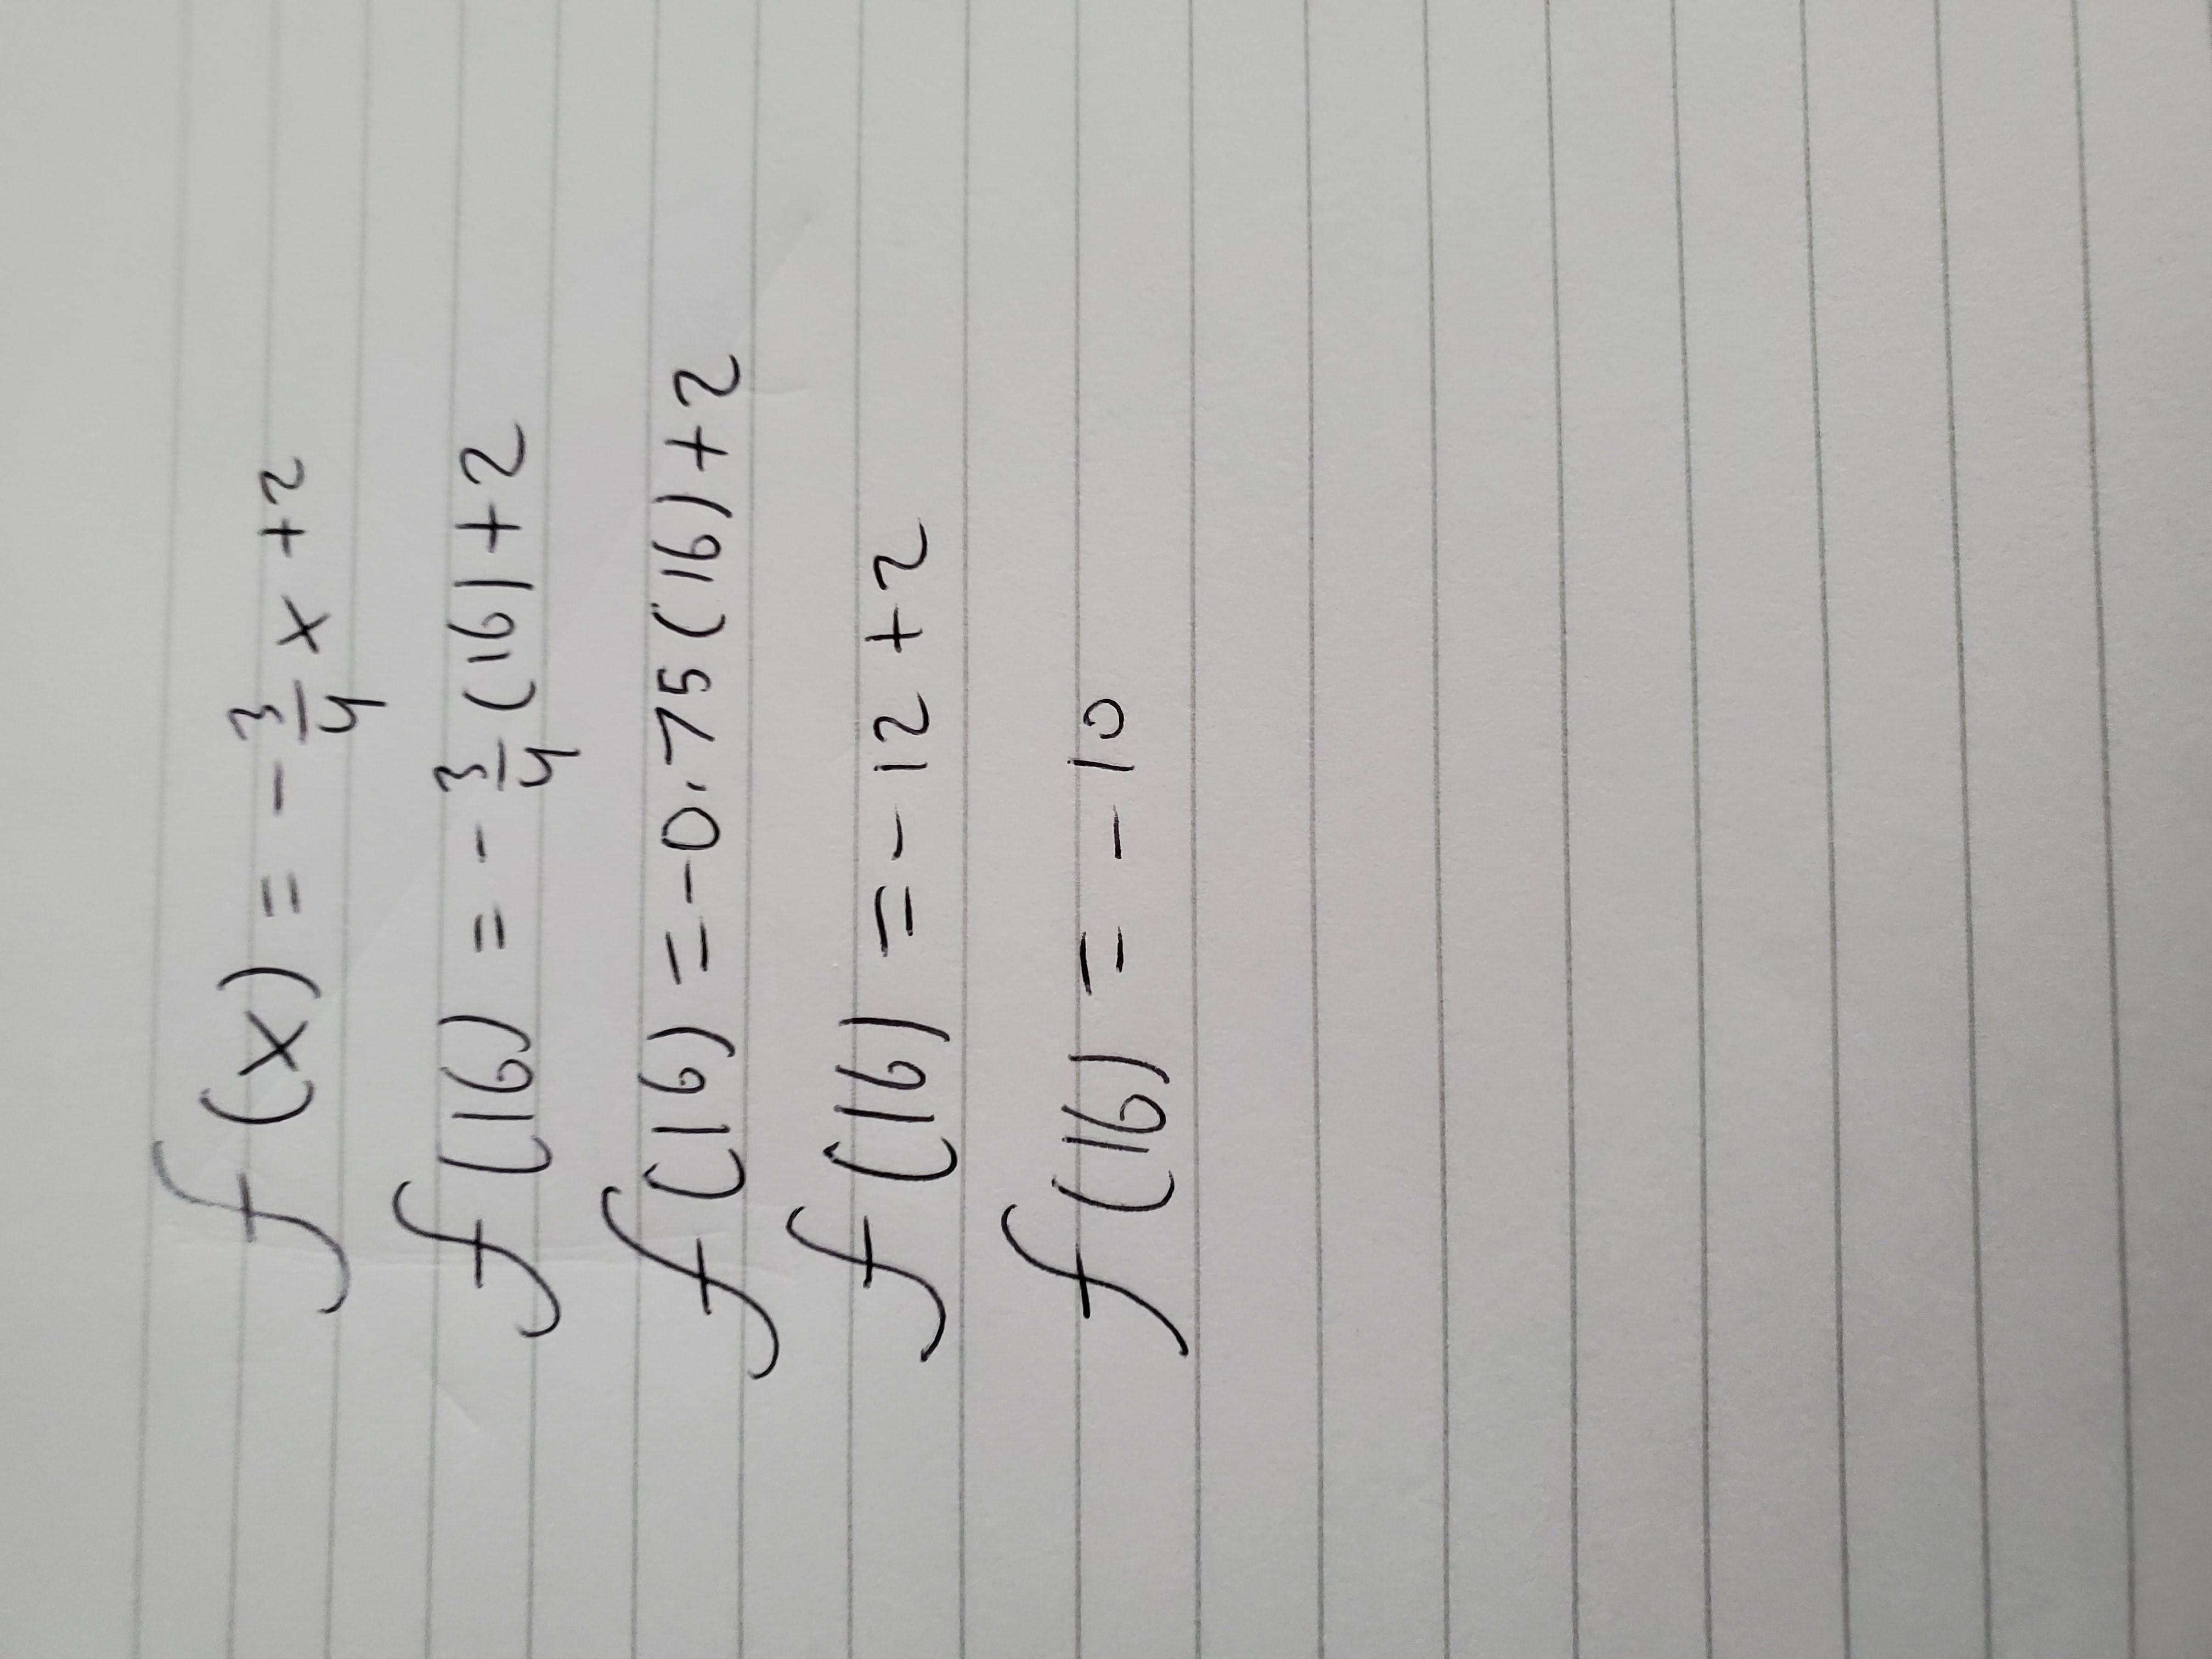 f(x) = -3/4 x + 2
f(16) = -3/4 (16) + 2
f(16) = -0.75(16) + 2
f(16) = -12 + 2
f(16) = -10